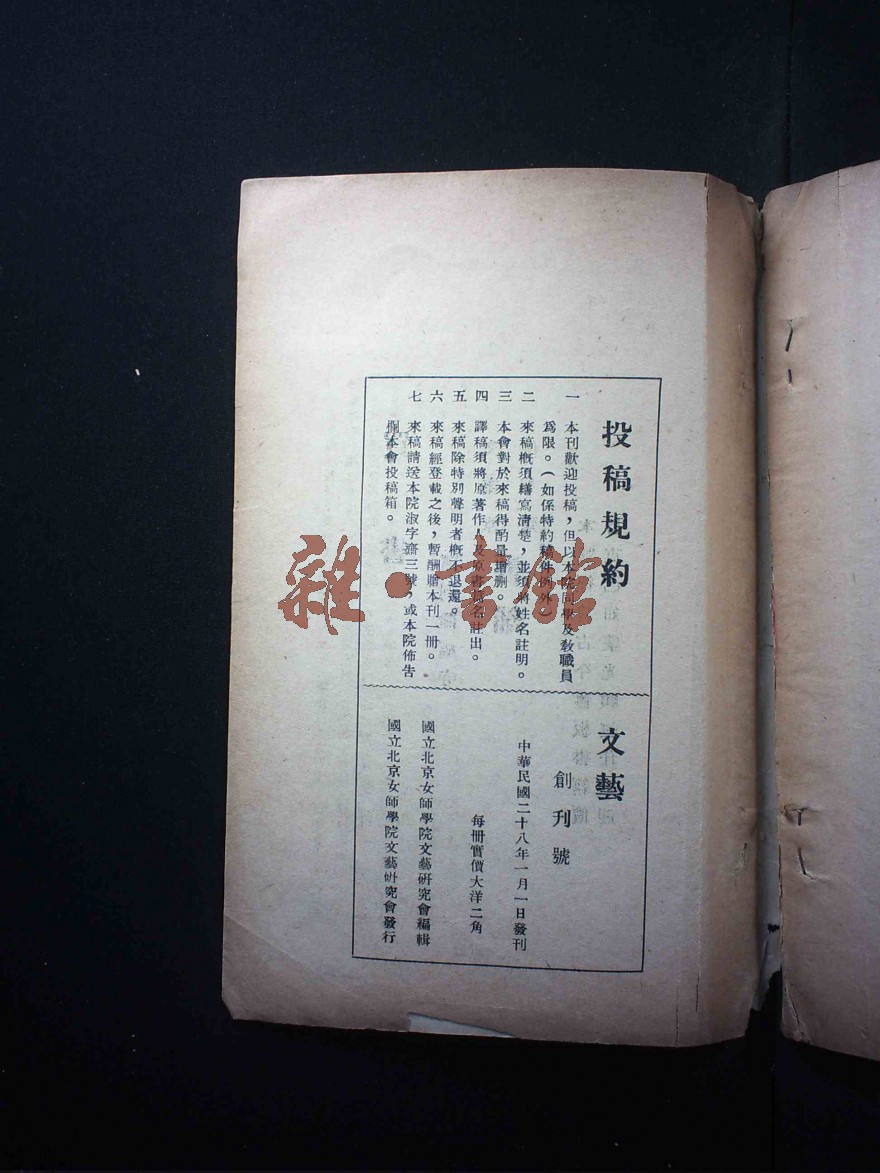 投稿規約
一 本刊歡迎投稿，但以本院同學及教職員
爲限。（如係特約稿件例外）
二 來稿概須繕寫清楚，並須將姓名註明。
三 本會對於來稿得酌量增刪。
四 譯稿須將原著作人及原書篇名註出。
五 來稿除特別聲明者概不退還。
六 來稿經登載之後，暫酬贈本刊一冊。
七 來稿請送本院淑字齋三號，或本院佈告
欄本會投稿箱。
文藝
創刊號
中華民國二十八年一月一日發刊
每冊實價大洋二角
國立北京女師學院文藝研究會編輯
國立北京女師學院文藝研究會發行
雜·書館